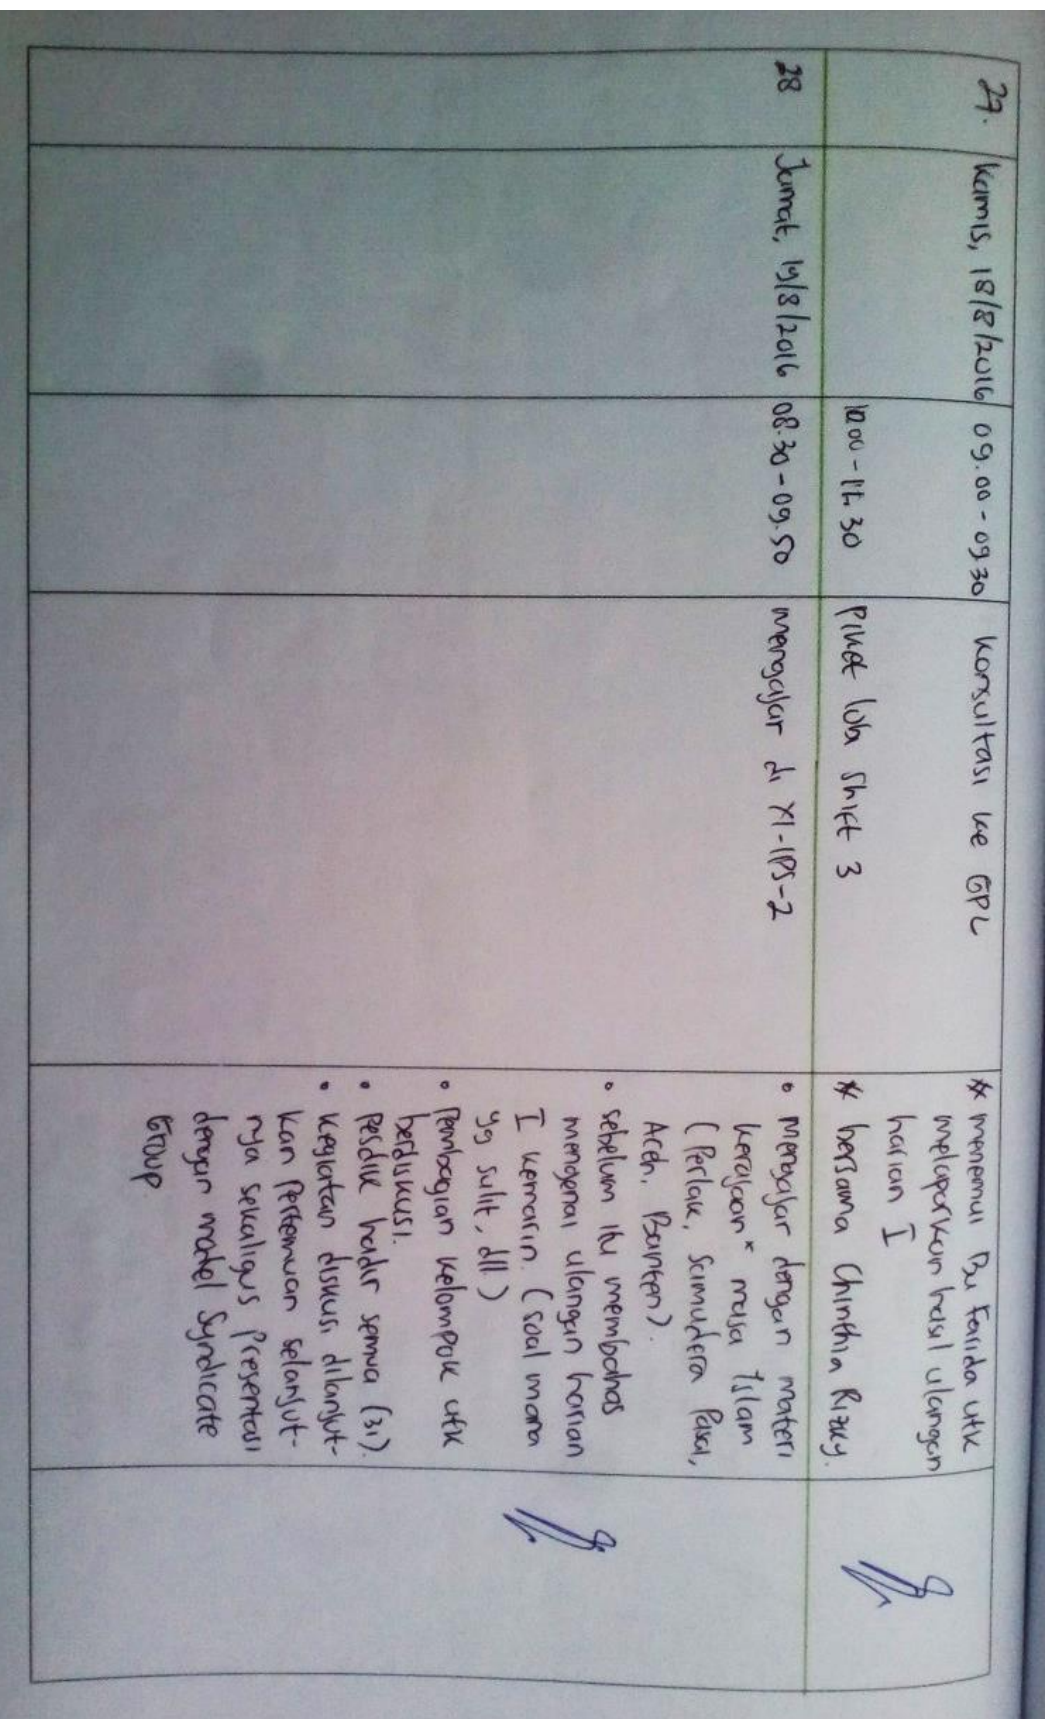 27.
Kamis, 18/8/2016
09.00 - 09.30
Konsultasi ke GPL
* menemui Bu Farida utk
melaporkan hasil ulangan
harian I
10.00 - 11.30
Piket loba shift 3
* bersama Chinthia Rizky.
28
Jumat, 19/8/2016
08.30 - 09.50
mengajar di XI-IPS-2
• Mengajar dengan materi
kerajaan" masa Islam
(Perlak, Samudera Pasai,
Aceh, Banten).
• sebelum itu membahas
mengenai ulangan harian
I kemarin. (soal mana
yg sulit, dll.)
• Pembagian kelompok utk
berdiskusi.
• Pesdik hadir semua (31).
• Kegiatan diskusi dilanjut-
kan pertemuan selanjut-
nya sekaligus presentasi
dengan model Syndicate
Group